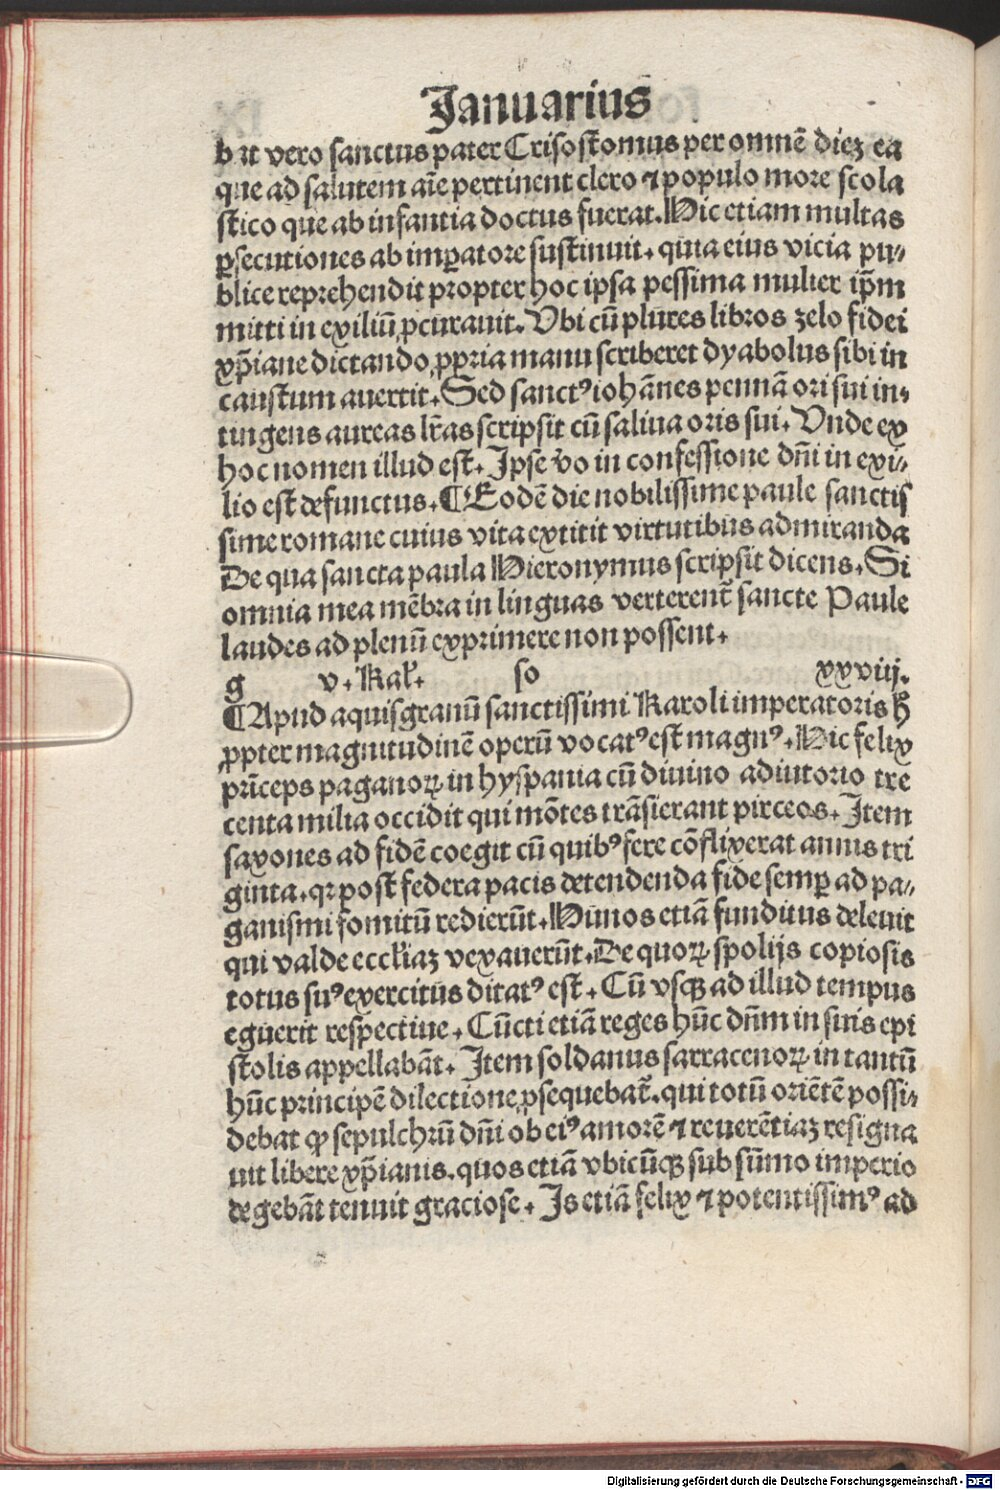 Januarius
bat vero sanctus pater Crisostomus per omnē dieʒ ea
que ad salutem aīe pertinent clero ⁊ populo more scola
stico que ab infantia doctus fuerat. Hic etiam multas
ꝑsecutiones ab imꝑatore sustinuit. quia eius vicia pu⸗
blice reprehendit propter hoc ipsa pessima mulier ip̄m
mitti in exiliū ꝓcurauit. Ubi cū plures libros zelo fidei
xp̄iane dictando ꝓpria manu scriberet dyabolus sibi in
caustum auertit. Sed sanctꝰ iohānes pennā ori sui in⸗
tingens aureas lr̄as scripsit cū saliua oris sui. Unde ex
hoc nomen illud est. Ipse v̄o in confessione dn̄i in exi⸗
lio est defunctus. ¶ Eodē die nobilissime paule sanctis
sime romane cuius vita extitit virtutibus admiranda
De qua sancta paula Hieronymus scripsit dicens. Si
omnia mea mēbra in linguas verterent᷑ sancte Paule
laudes ad plenū exprimere non possent.
g v. Kal̓. so xxviij.
¶ Apud aquisgranū sanctissimi Karoli imperatoris h̄
ꝓpter magnitudinē operū vocatꝰ est magnꝰ. Hic felix
prīceps paganoꝝ in hyspania cū diuino adiutorio tre
centa milia occidit qui mōtes trāsierant pirceos. Item
saxones ad fidē coegit cū quibꝰ fere cōflixerat annis tri
ginta. qꝛ post federa pacis detendenda fide semꝑ ad pa⸗
ganismi fomitū redierūt. Hunos etiā funditus deleuit
qui valde eccl̓iaʒ vexauerūt. De quoꝝ spolijs copiosis
totus suꝰ exercitus ditatꝰ est. Cū vsqꝫ ad illud tempus
eguerit respectiue. Cūcti etiā reges hūc dn̄m in suis epi
stolis appellabāt. Item soldanus sarracenoꝝ in tantū
hūc principē dilectione ꝓsequebat᷑. qui totū oriētē possi⸗
debat ꝙ sepulchrū dn̄i ob eiꝰ amorē ⁊ reuerētiaʒ resigna
uit libere xp̄ianis. quos etiā vbicūqꝫ sub sūmo imperio
degebāt tenuit graciose. Is etiā felix ⁊ potentissimꝰ ad
Digitalisierung gefördert durch die Deutsche Forschungsgemeinschaft - DFG